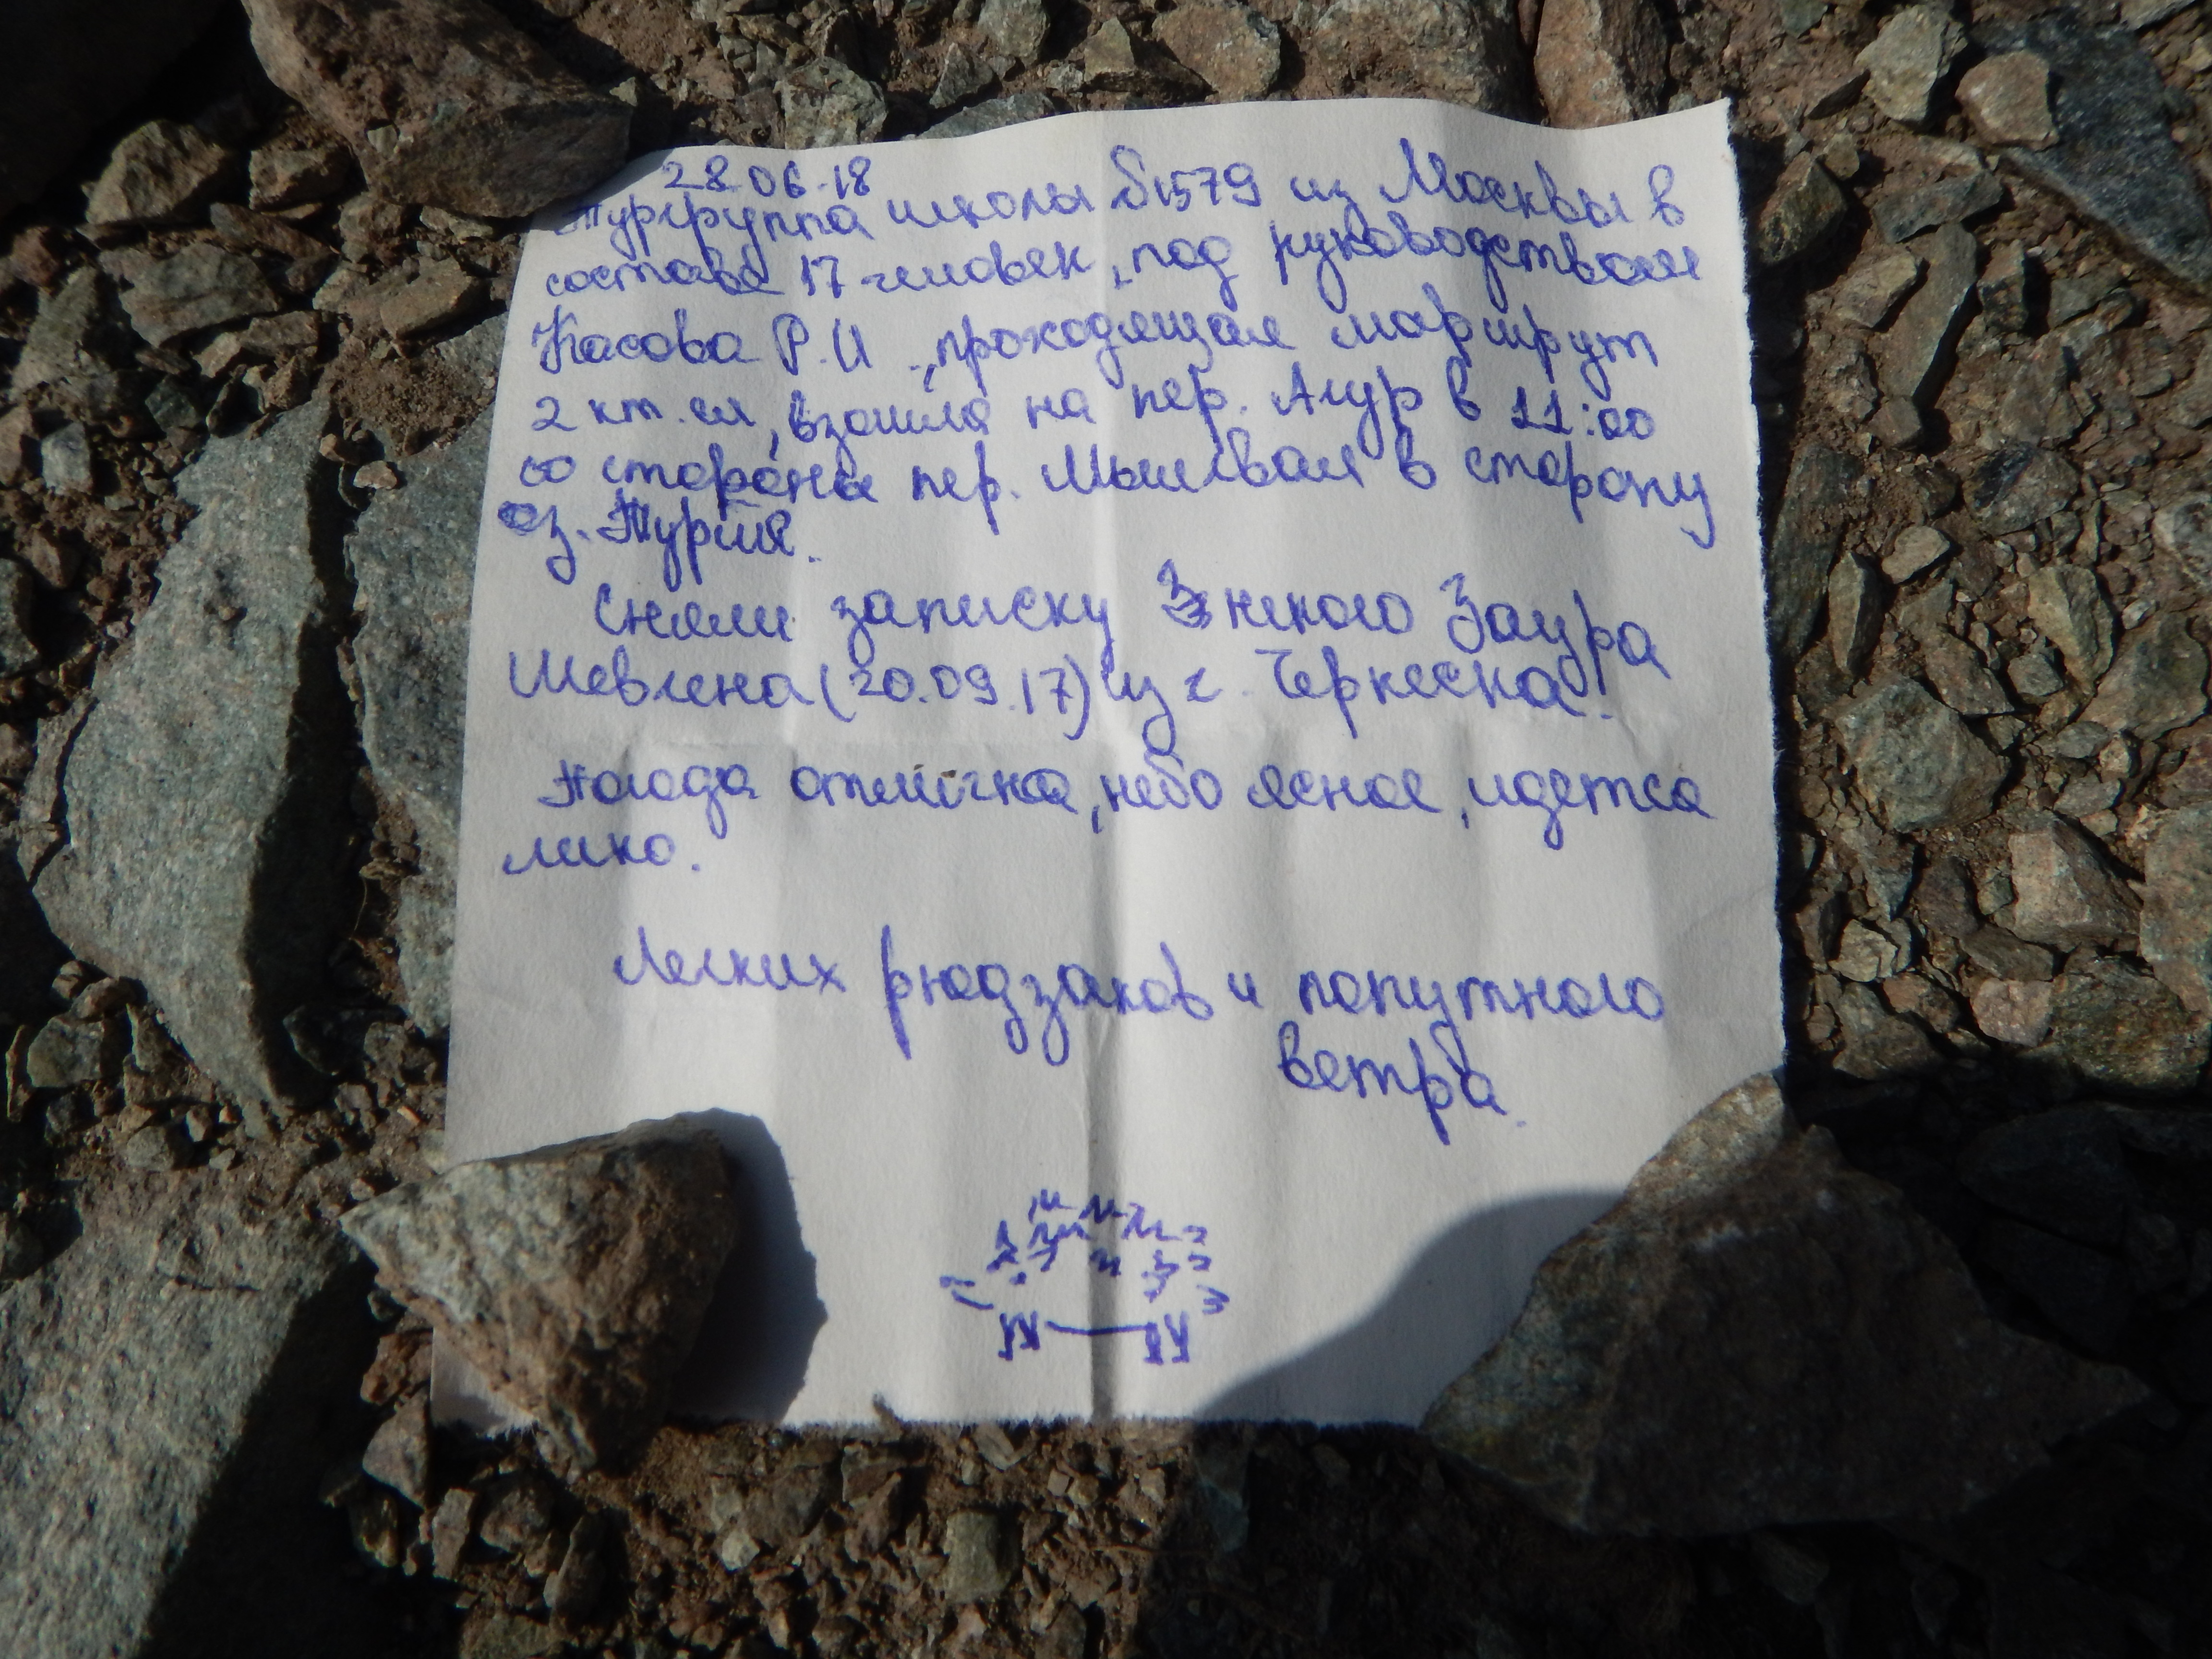 28.06.18
Тургруппа школы №1579 из Москвы в
составе 17 человек, под руководством
Касова Р.И., проходящая маршрут
2 кт.сл, взошла на пер. Агур в 11:00
со стороны пер. Мылгвал в сторону
оз. Турье.
Сняли записку Заура
(20.09.17) из г. Черкесска.
Погода отличная, небо ясное, идется
легко.
Легких рюдзаков и попутного
ветра.